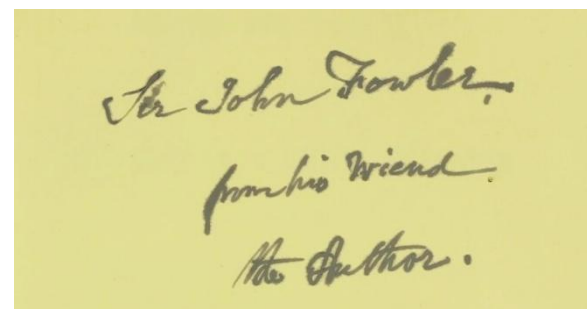 Sir John Fowler,
from his Friend
the Author.